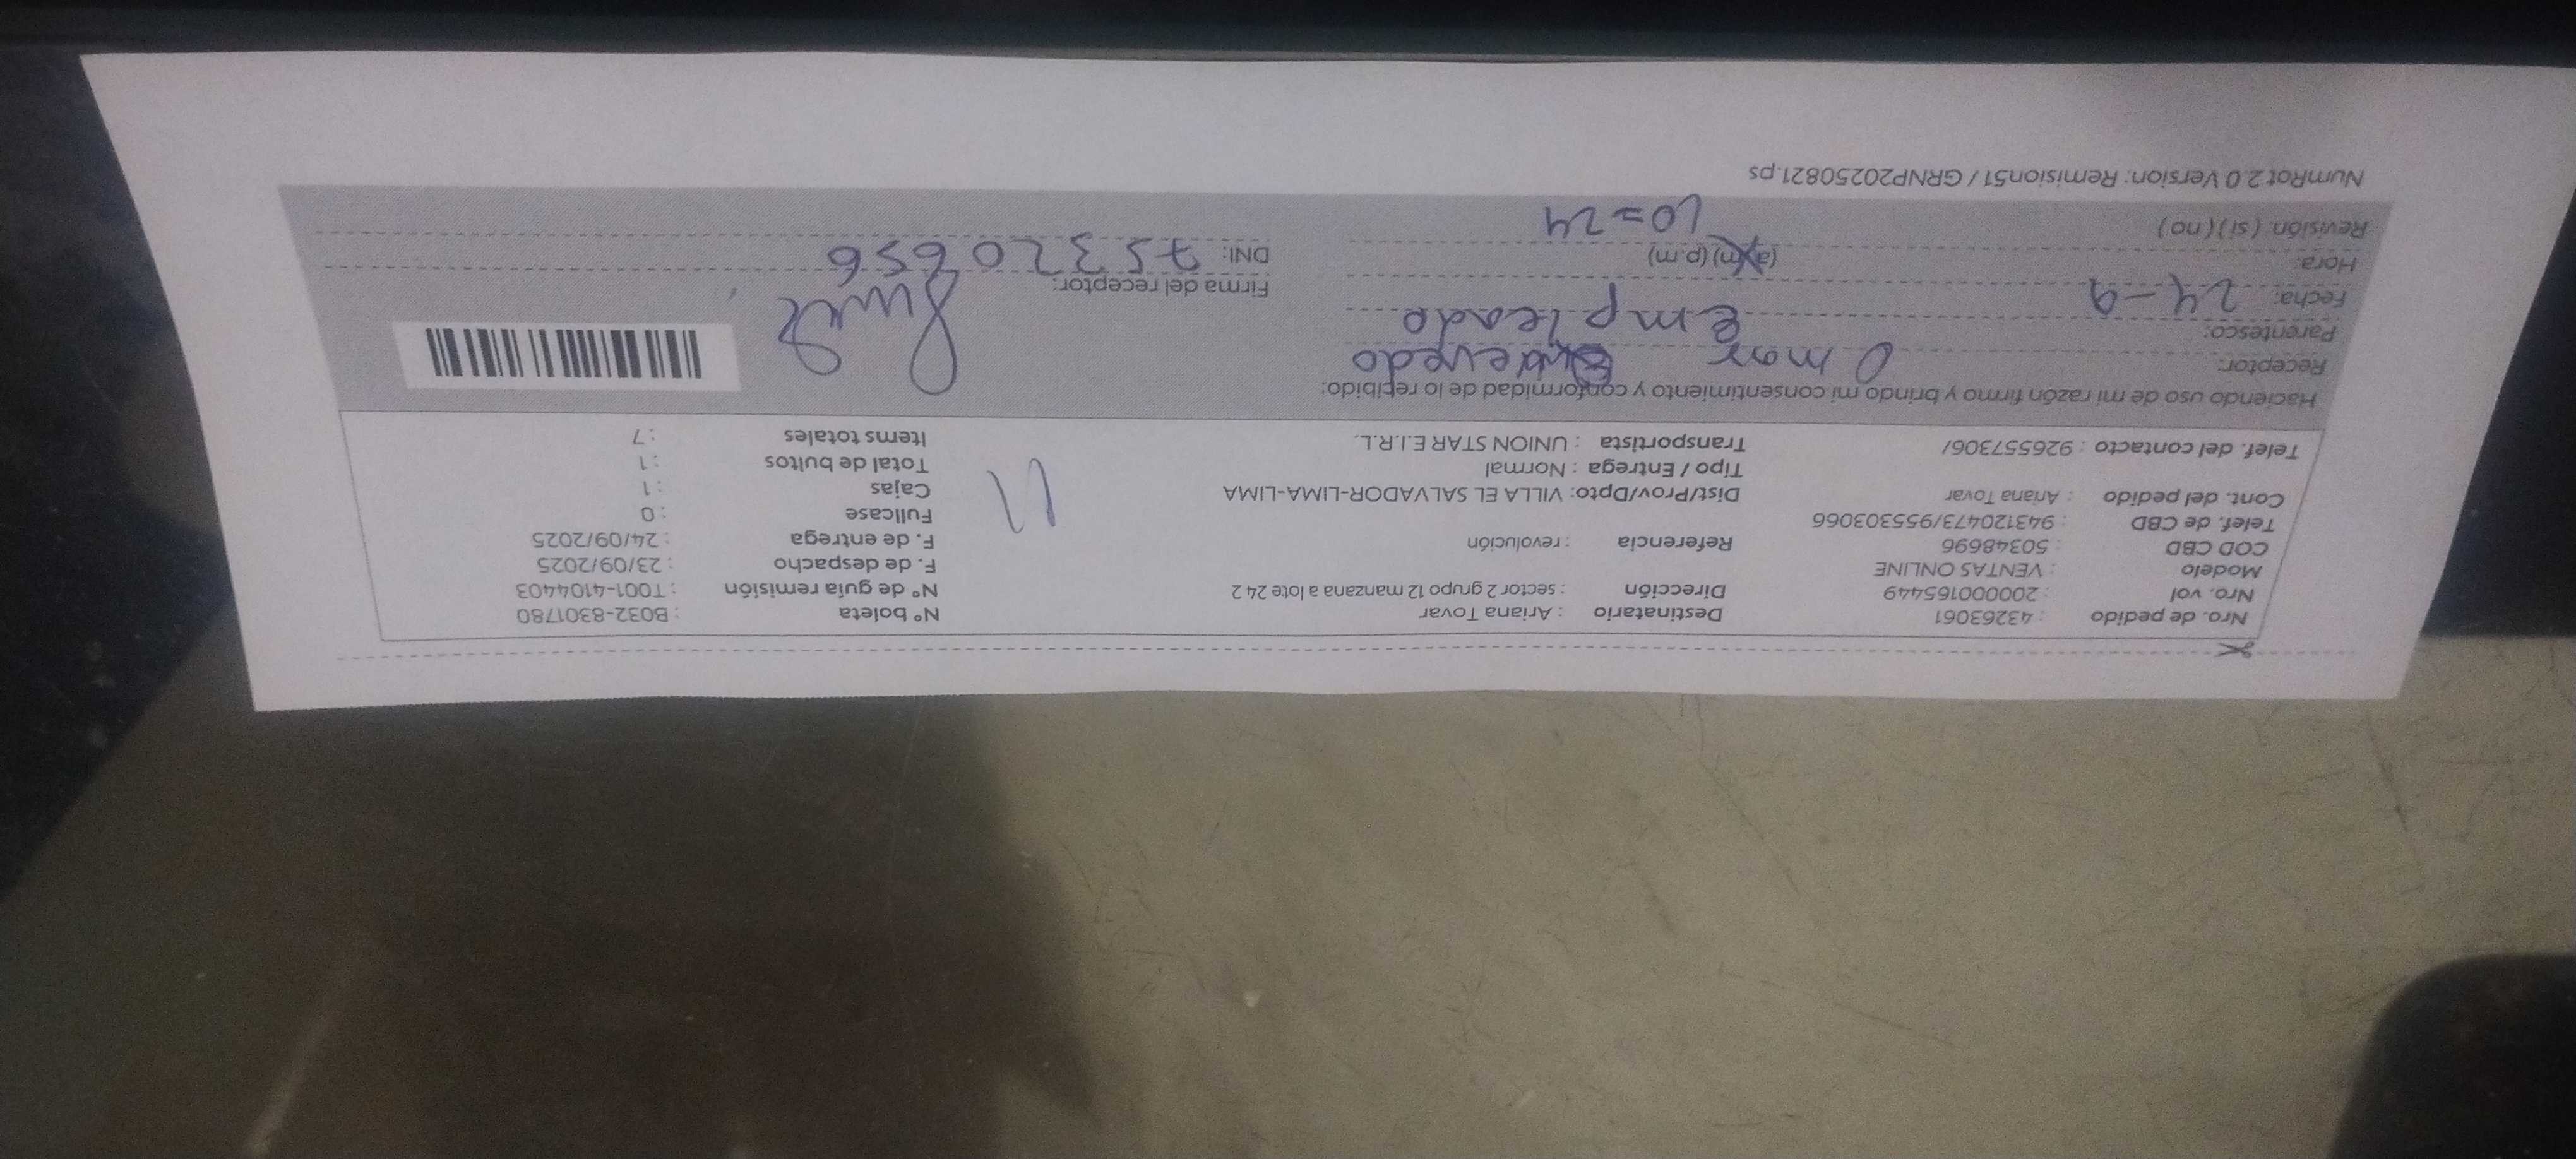 Nro. de pedido : 43263061 Destinatario : Ariana Tovar N° boleta : B032-8301780
Nro. vol : 200000165449 Dirección : sector 2 grupo 12 manzana a lote 24 2 N° de guía remisión : T001-4104403
Modelo : VENTAS ONLINE F. de despacho : 23/09/2025
COD CBD : 50348696 Referencia : revolución F. de entrega : 24/09/2025
Telef. de CBD : 943120473/955303066 Fullcase : 0
Cont. del pedido : Ariana Tovar Dist/Prov/Dpto: VILLA EL SALVADOR-LIMA-LIMA Cajas : 1
Tipo / Entrega : Normal Total de bultos : 1
Telef. del contacto : 926557306/ Transportista : UNION STAR E.I.R.L. Items totales : 7
11
Haciendo uso de mi razón firmo y brindo mi consentimiento y conformidad de lo recibido:
Receptor: Omar
Parentesco: Empleado
Fecha: 24-9 Firma del receptor:
Hora: (a.m) (p.m) DNI: 75320656
10=24
Revisión: (si) (no)
NumRot 2.0 Version: Remision51 / GRNP20250821.ps